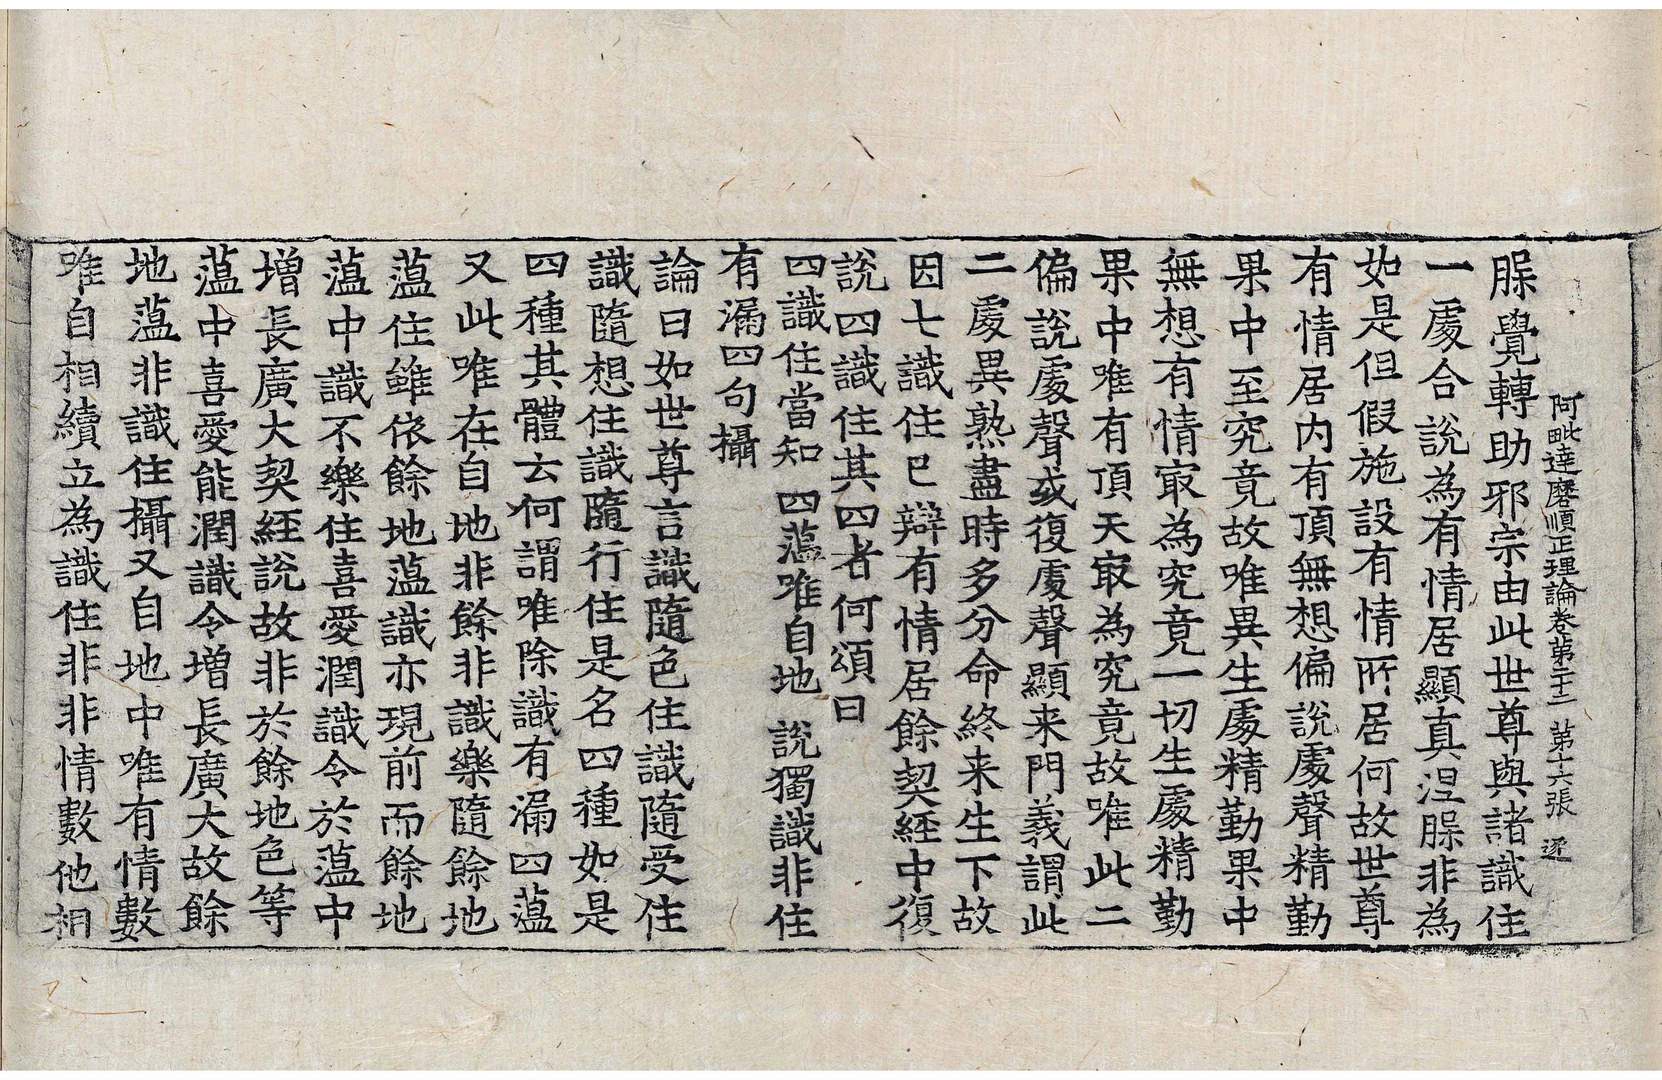 阿毗達磨順正理論卷第二十二 第十六張 逐
脲覺轉助邪宗由此世尊與諸識住
一處合說為有情居顯真涅脲非為
如是但假施設有情所居何故世尊
有情居内有頂無想偏說處聲精勤
果中至究竟故唯異生處精勤果中
無想有情㝡為究竟一切生處精勤
果中唯有頂天㝡為究竟故唯此二
偏說處聲或復處聲顯来門義謂此
二處異熟盡時多分命終来生下故
因七識住已辯有情居餘契經中復
說四識住其四者何頌曰
四識住當知 四薀唯自地 說獨識非住
有漏四句攝
論曰如世尊言識隨色住識隨受住
識隨想住識隨行住是名四種如是
四種其體云何謂唯除識有漏四薀
又此唯在自地非餘非識樂隨餘地
薀住雖依餘地薀識亦現前而餘地
薀中識不樂住喜愛潤識令於薀中
增長廣大契經說故非於餘地色等
薀中喜愛能潤識令增長廣大故餘
地薀非識住攝又自地中唯有情數
唯自相續立為識住非非情數他相